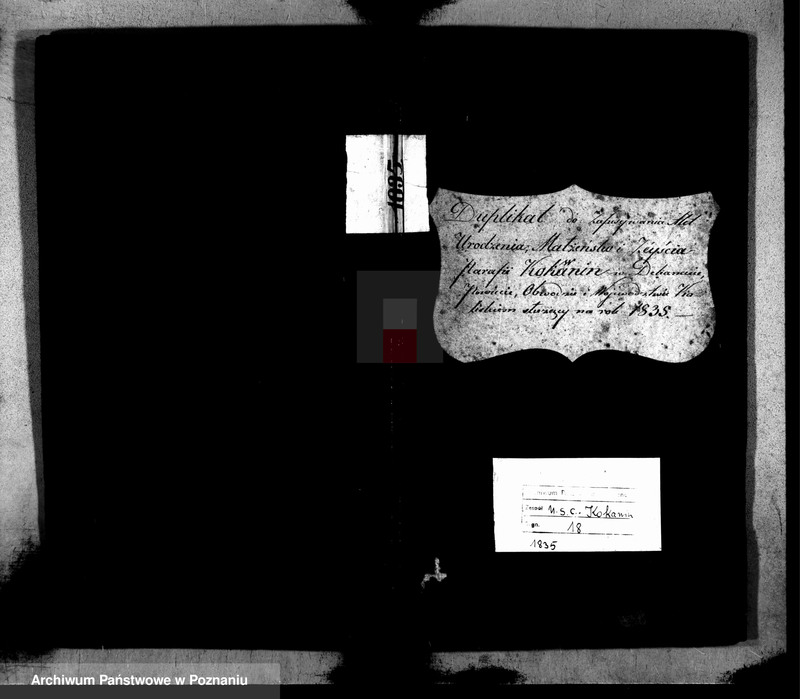 1835
Duplikat do zapisywania Akt
Urodzenia, Małżeństw i Zejścia
Parafii Kokanin w Dekanacie,
Powiecie, Obwodzie i Województwie Ka-
liskiem służący na rok 1835 —
Zespół U.S.C. Kokanin
Sygn. 18
1835
Archiwum Państwowe w Poznaniu